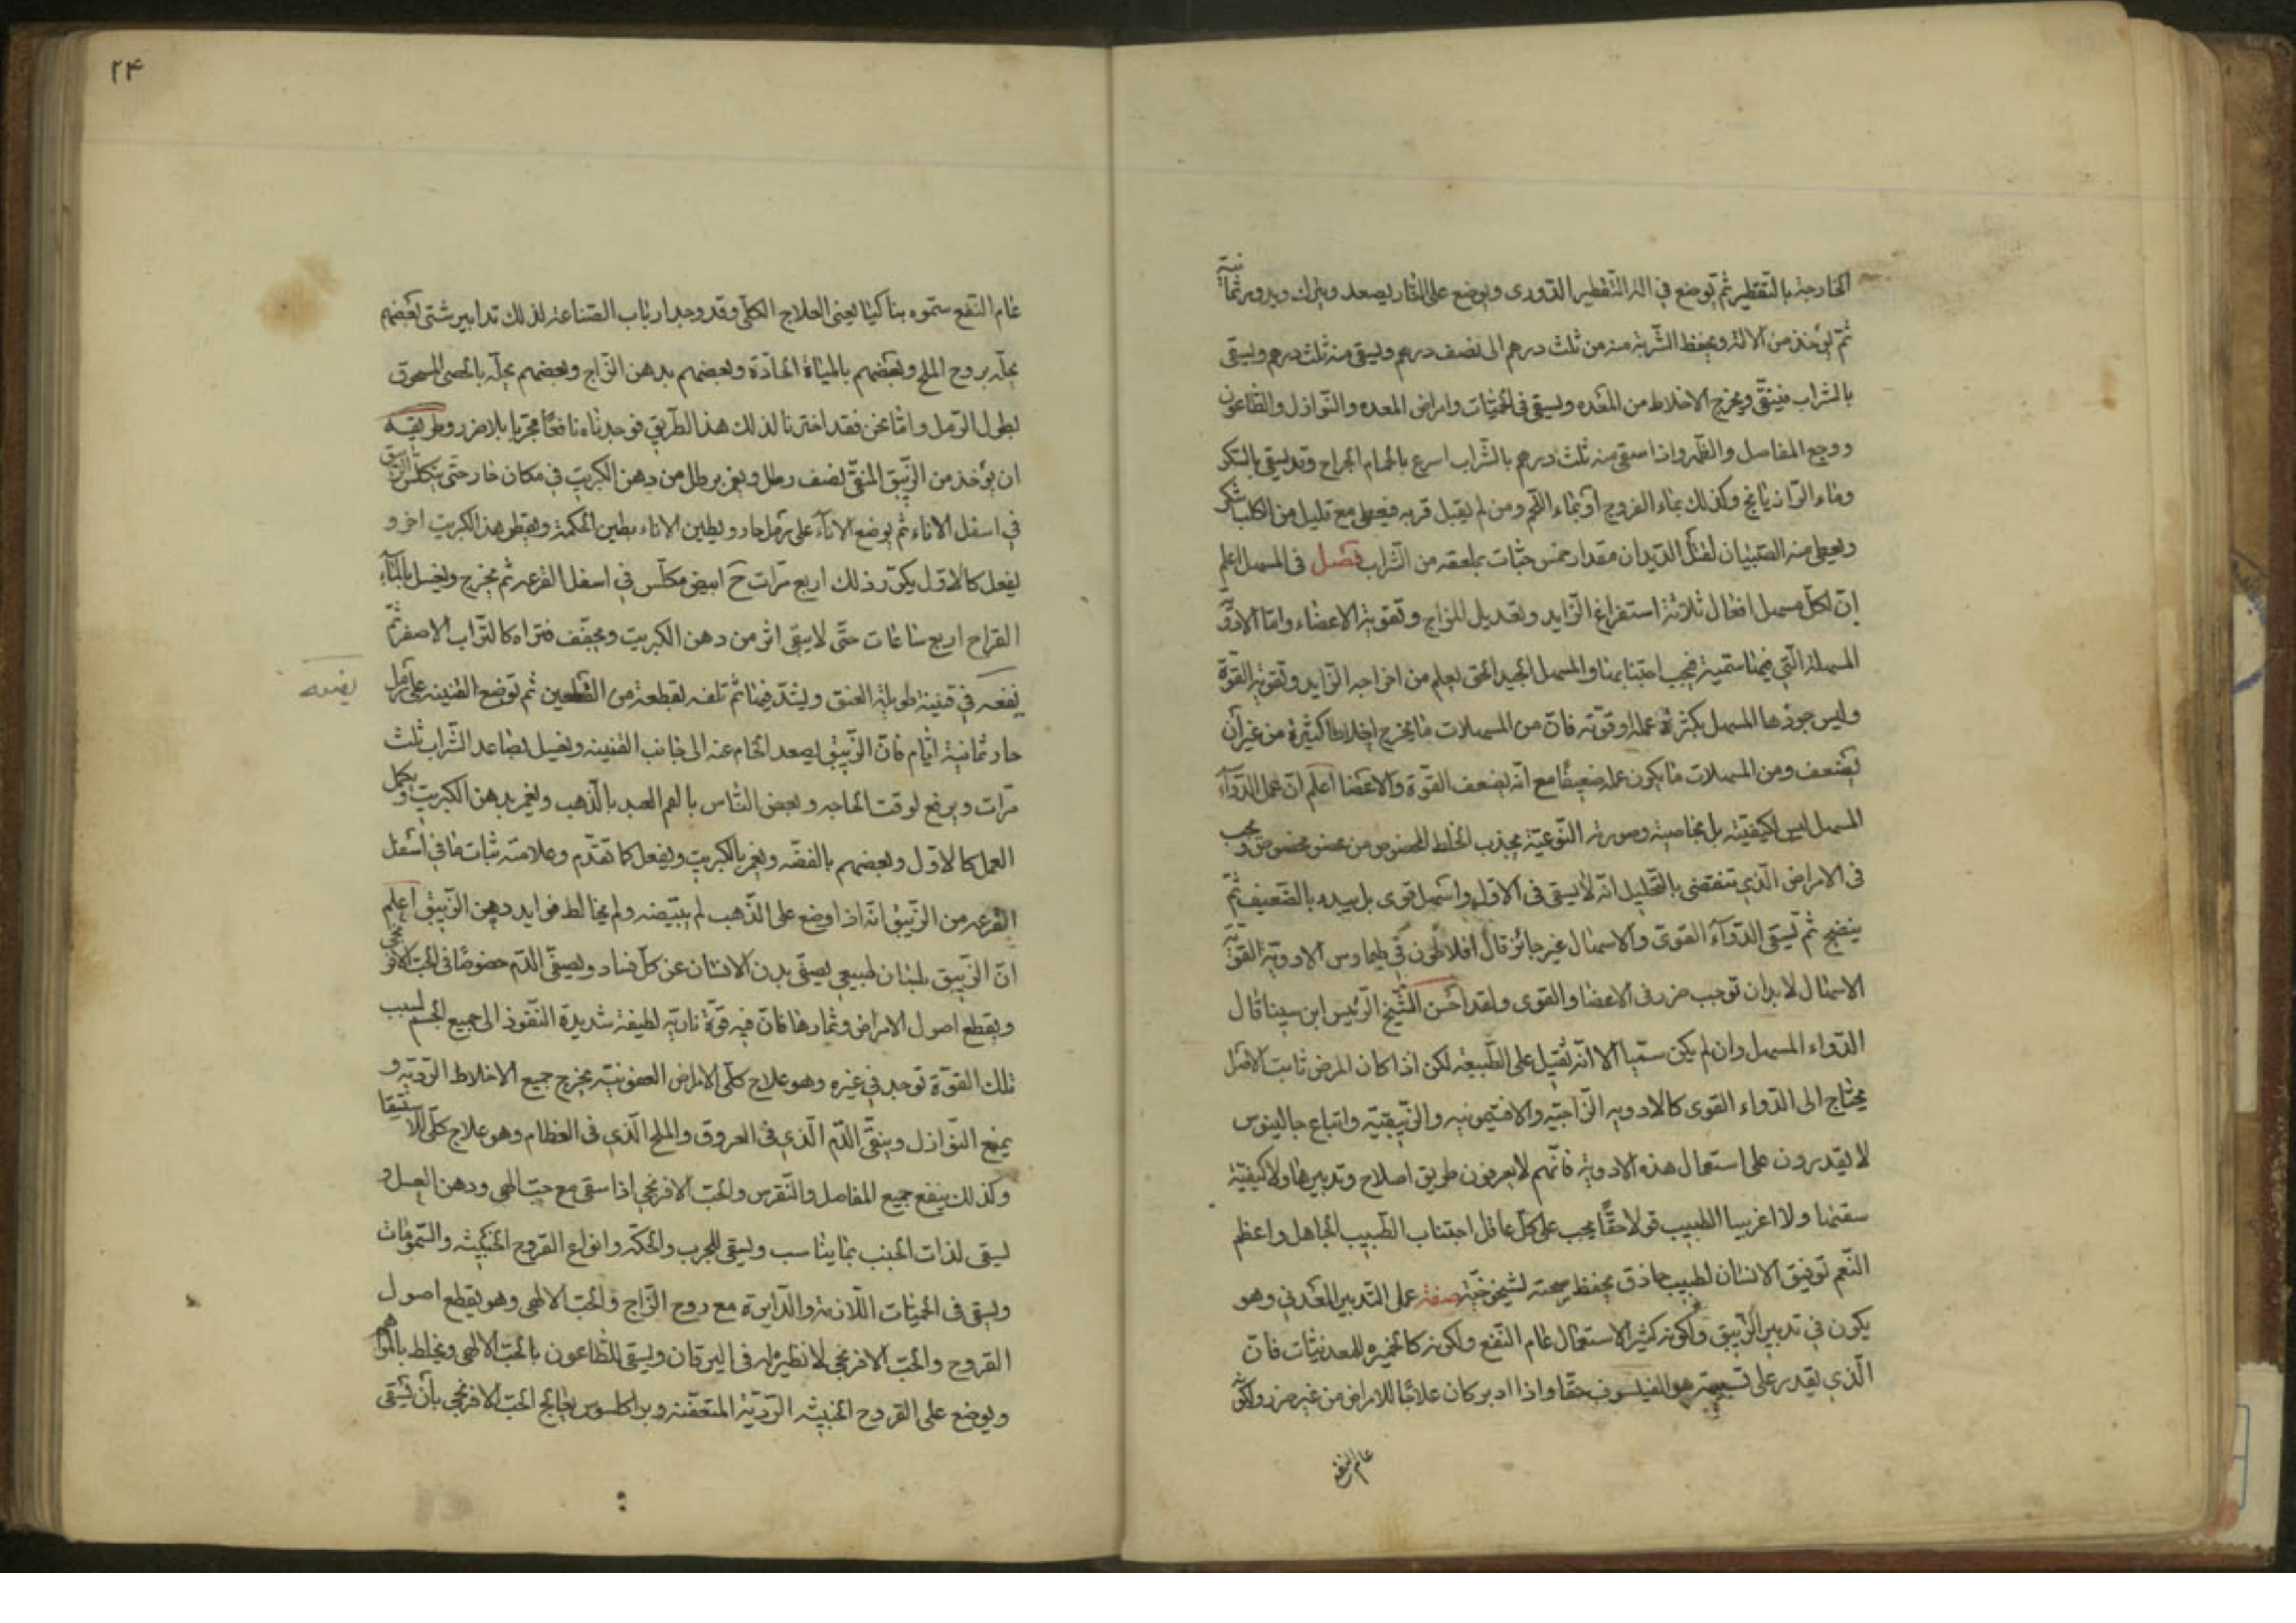 الخارجة بالتقطير ثم توضع في الة التقطير الدوری ويوضع علی النار ليصعد وينزل ويدور ثمانية
ثم يؤخذ من الالة ويحفظ الشربة منه من ثلث درهم الی نصف درهم ويسقی منه ثلث درهم ويسقی
بالشراب فينقی ويخرج الاخلاط من المعده ويسقی فی الحميات وامراض المعده والنوازل والطاعون
ووجع المفاصل والظهر واذا سقی منه ثلث درهم بالشراب اسرع بالحام الجراح وقد يسقی بالسكر
وماء الرازيانج وكذلك بماء الفروج او بماء اللحم ومن لم يقبل قربه فيعطی مع قليل من الكلب شكر
ويعطی منه الصبيان لقتل الديدان مقدار خمس حبات بملعقه من الشراب فصل فی المسهل اعلم
ان لكل مسهل افعال ثلاثة استفراغ الزايد وتعديل المزاج وتقوية الاعضاء واما الادوية
المسهلة التی فيها سمية فيجب اجتنابها والمسهل الجيد الحق يعلم من اخراجه الزايد وتقوية القوة
وليس جودها المسهل بكثرة عمله وقوته فان من المسهلات ما يخرج اخلاطا كثيرة من غير ان
يضعف ومن المسهلات ما يكون عمله ضعيفا مع انه يضعف القوة والاعضا اعلم ان عمل الدوآء
المسهل ليس لكيفيته بل بخاصيته وصورته النوعية يجذب الخلط المخصوص من عضو مخصوص ويجب
فی الامراض الذي تنقضی بالتحليل انه لا يسقی فی الاول واسهل قوی بل يبده بالضعيف ثم
ينضج ثم يسقی الدوآء القوی والاسهال غير جائز قال افلاطون في طيماوس الادوية القوية
الاسهال لا بد ان توجب ضرر فی الاعضا والقوی ولقد احسن الشيخ الرئيس ابن سينا قال
الدواء المسهل وان لم يكن سميا الا انه ثقيل علی الطبيعه لكن اذا كان المرض ثابت الاصل
يحتاج الی الدواء القوی كالادويه الزاجيه والافتيمونيه والزيبقيه واتباع جالينوس
لا يقدرون علی استعمال هذه الادوية فانهم لا يعرفون طريق اصلاح وتدبيرها ولا كيفية
سقيها ولا اغربيا الطبيب قولا حقا يجب علی كل عاقل اجتناب الطبيب الجاهل واعظم
النعم توفيق الانسان لطبيب حاذق يحفظ صحته لشيخوخته صفة عمل التدبير المعدني وهو
يكون في تدبير الزيبق ولكونه كثير الاستعمال عام النفع ولكونه كالخميره للمعدنيات فان
الذي يقدر علی تسميته هو الفيلسوف حقا واذا ادبر كان علاجا للامراض من غير ضرر ولكونه
عام النفع
٢۴
عام النفع سموه بناكيا يعنی العلاج الكلی وقد وجد ارباب الصناعة لذلك تدابير شتی بعضهم
يحله بروح الملح وبعضهم بالمياة الحادة وبعضهم بدهن الزاج وبعضهم يحله بالحصی المسحوق
بطول الزمل واما نحن فقد اخترنا لذلك هذا الطريق فوجدناه نافعا مجربا بلا ضرر وطريقه
ان يؤخذ من الزيبق المنقی نصف رطل ويغمر برطل من دهن الكبريت في مكان حار حتی يتكلس الزيبق
في اسفل الاناء ثم يوضع الاناء علی رمل حار ويطين الاناء بطين الحكمة ويقطر هذ الكبريت اخر و
يفعل كالاول يكرر ذلك اربع مرات ح ابيض مكلس في اسفل القرعه ثم يخرج ويغسل بالمآء
القراح اربع ساعات حتی لا يبقی اثر من دهن الكبريت ويجفف فتراه كالتراب الاصفر ثم
يضعه في قنينة طويلة العنق ويشد فيها ثم تلفه لقطعة من القطعين ثم توضع القنينه علی رمل
يضعه
حار ثمانية ايام فان الزيبق يصعد الخام عنه الی جانب القنينه ويغسل بصاعد الشراب ثلث
مرات ويرفع لوقت الحاجه وبعض الناس بالغم العبد بالذهب ويغمر بدهن الكبريت ويكمل
العمل كالاول وبعضهم بالفضه ويغمر بالكبريت ويفعل كما تقدم وعلامته ثبات ما في اسفل
القرعه من الزيبق انه اذا وضع علی الذهب لم يبيضه ولم يخالط فوايد دهن الزيبق اعلم
ان الزيبق بلسان طبيعي يصفی بدن الانسان عن كل فساد ويصفی الدم خصوصا فی الحب الافرنجي
ويقطع اصول الامراض وثمارها فان فيه قوة ناريه لطيفة شديدة النفوذ الی جميع الجسم لسبب
تلك القوة توجد في غيره وهو علاج كلی الامراض العفونيه يخرج جميع الاخلاط الرديه و
يمنع النوازل وينقی الدم الذي فی العروق والملح الذي فی العظام وهو علاج كلی للاستسقا
وكذلك ينفع جميع المفاصل والنقرس والحب الافرنجي اذا سقی مع حب الهی ودهن العسل و
يسقی لذات الجنب بما يناسب ويسقی للجرب والحكه وانواع القروح الخبيثه والسمومات
ويسقی فی الحميات اللازمة والدايرة مع روح الزاج والحب الالهی وهو يقطع اصول
القروح والحب الافرنجي لا نظير له فی اليرقان ويسقی للطاعون بالحب الالهی ويخلط بالمراهم
ويوضع علی القروح الخبيثه الرديه المتعفنه وبراكلسوس يعالج الحب الافرنجي بان يسقی